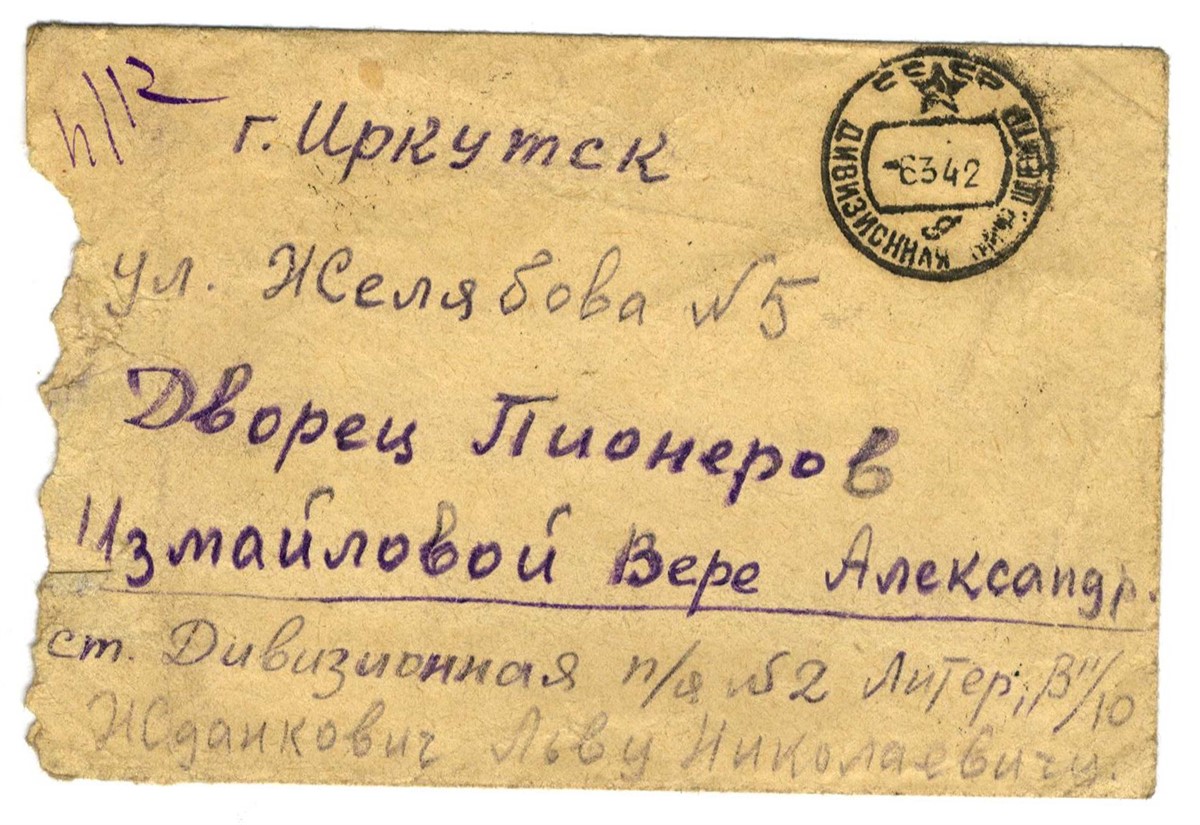 п/12
г. Иркутск
СССР
ДИВИЗИОННАЯ
-6342
ул. Желябова №5
Дворец Пионеров
Измайловой Вере Александр.
ст. Дивизионная п/я №2 Литер „В"/10
Жданкович Льву Николаевичу.